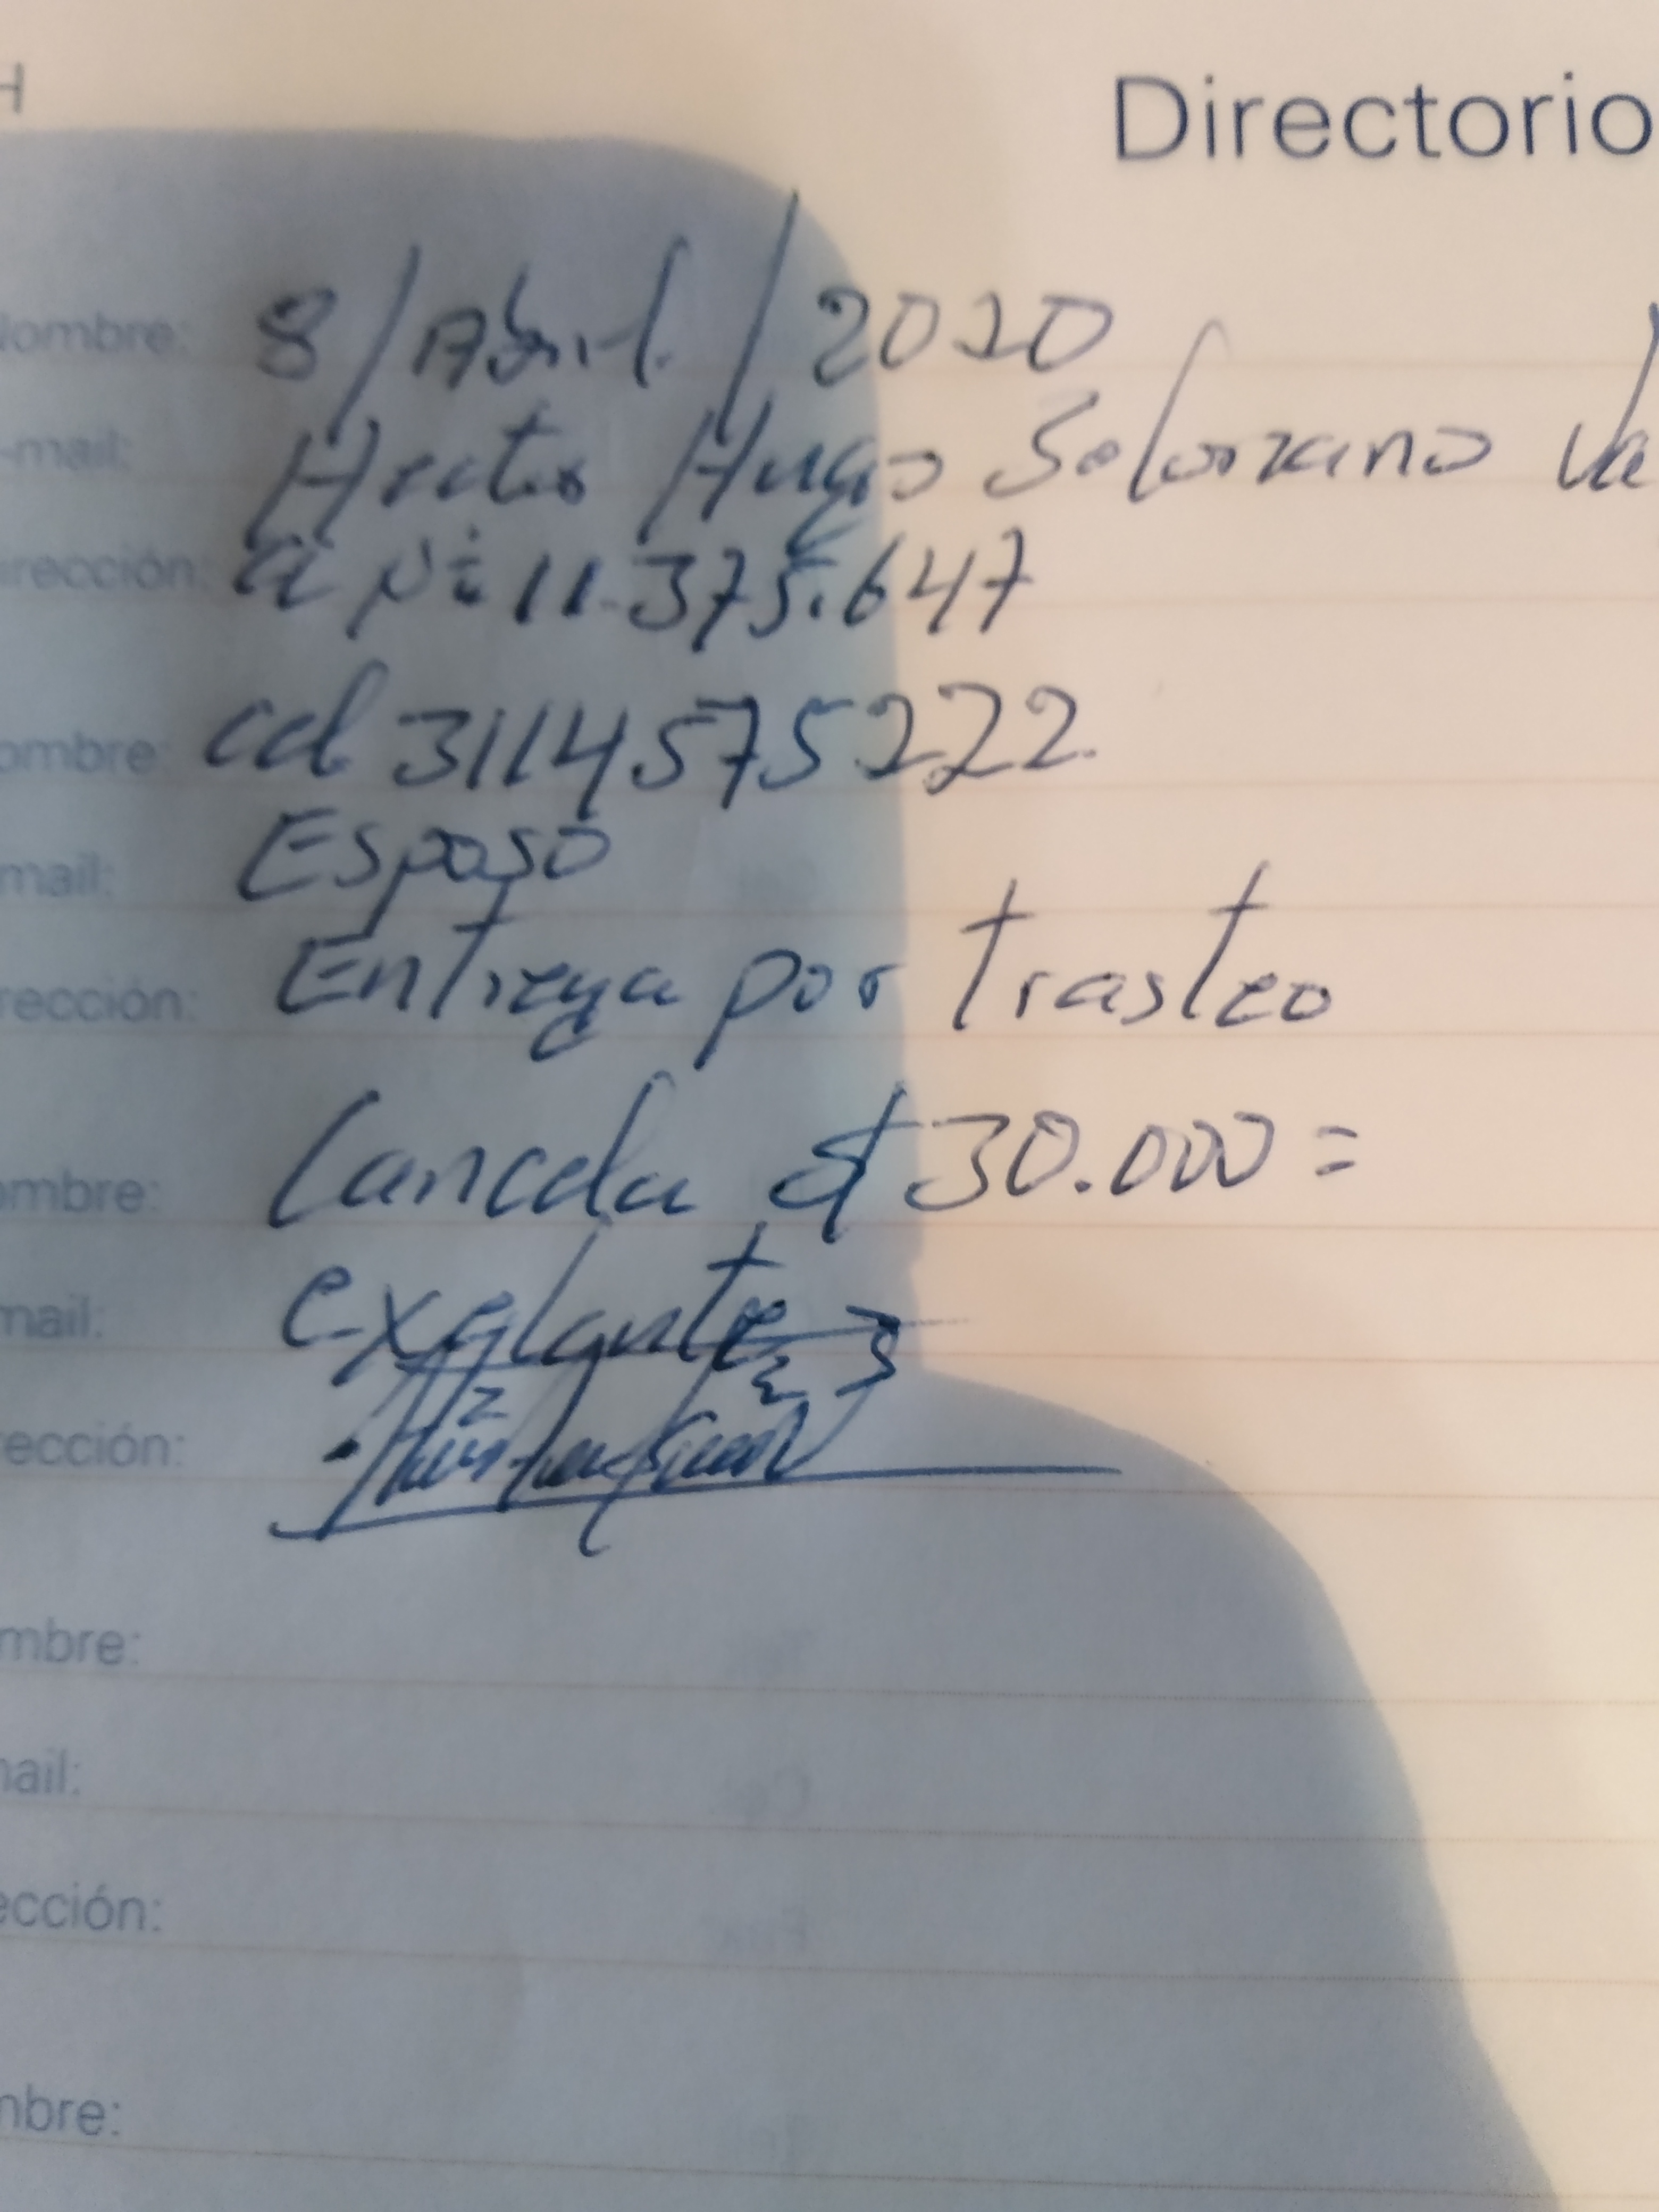 H
Directorio
Nombre: 8/Abril/2020
-mail: Hector Hugo Solorzano Va
irección: cc Nº 11.375.647
ombre: cel 3114575222.
mail: Esposo
rección: Entrega por trasteo
ombre: Cancela $30.000=
mail: exelante
rección:
mbre:
nail:
ección:
nbre: